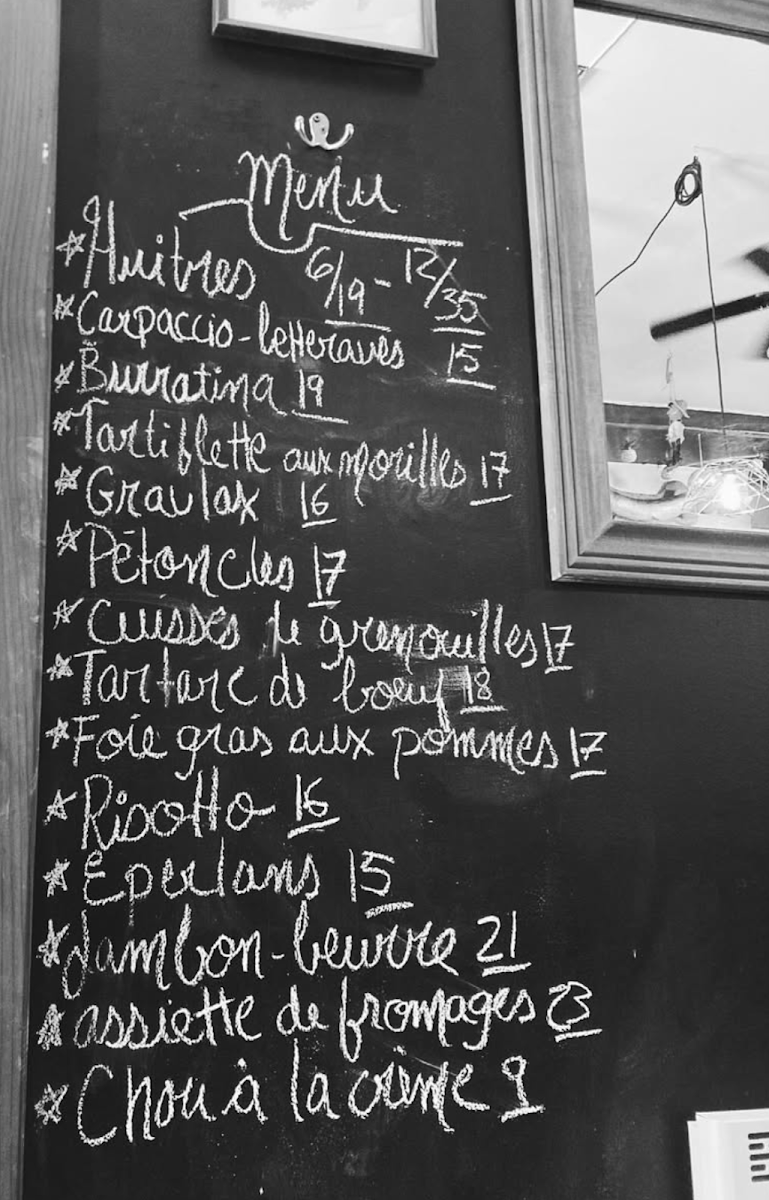 Menu
Huitres 6/19 - 12/35
Carpaccio-betteraves 15
Burratina 19
Tartiflette aux morilles 17
Gravlax 16
Pétoncles 17
Cuisses de grenouilles 17
Tartare de boeuf 18
Foie gras aux pommes 17
Risotto 16
Éperlans 15
Jambon-beurre 21
assiette de fromages 23
Chou à la crème 9